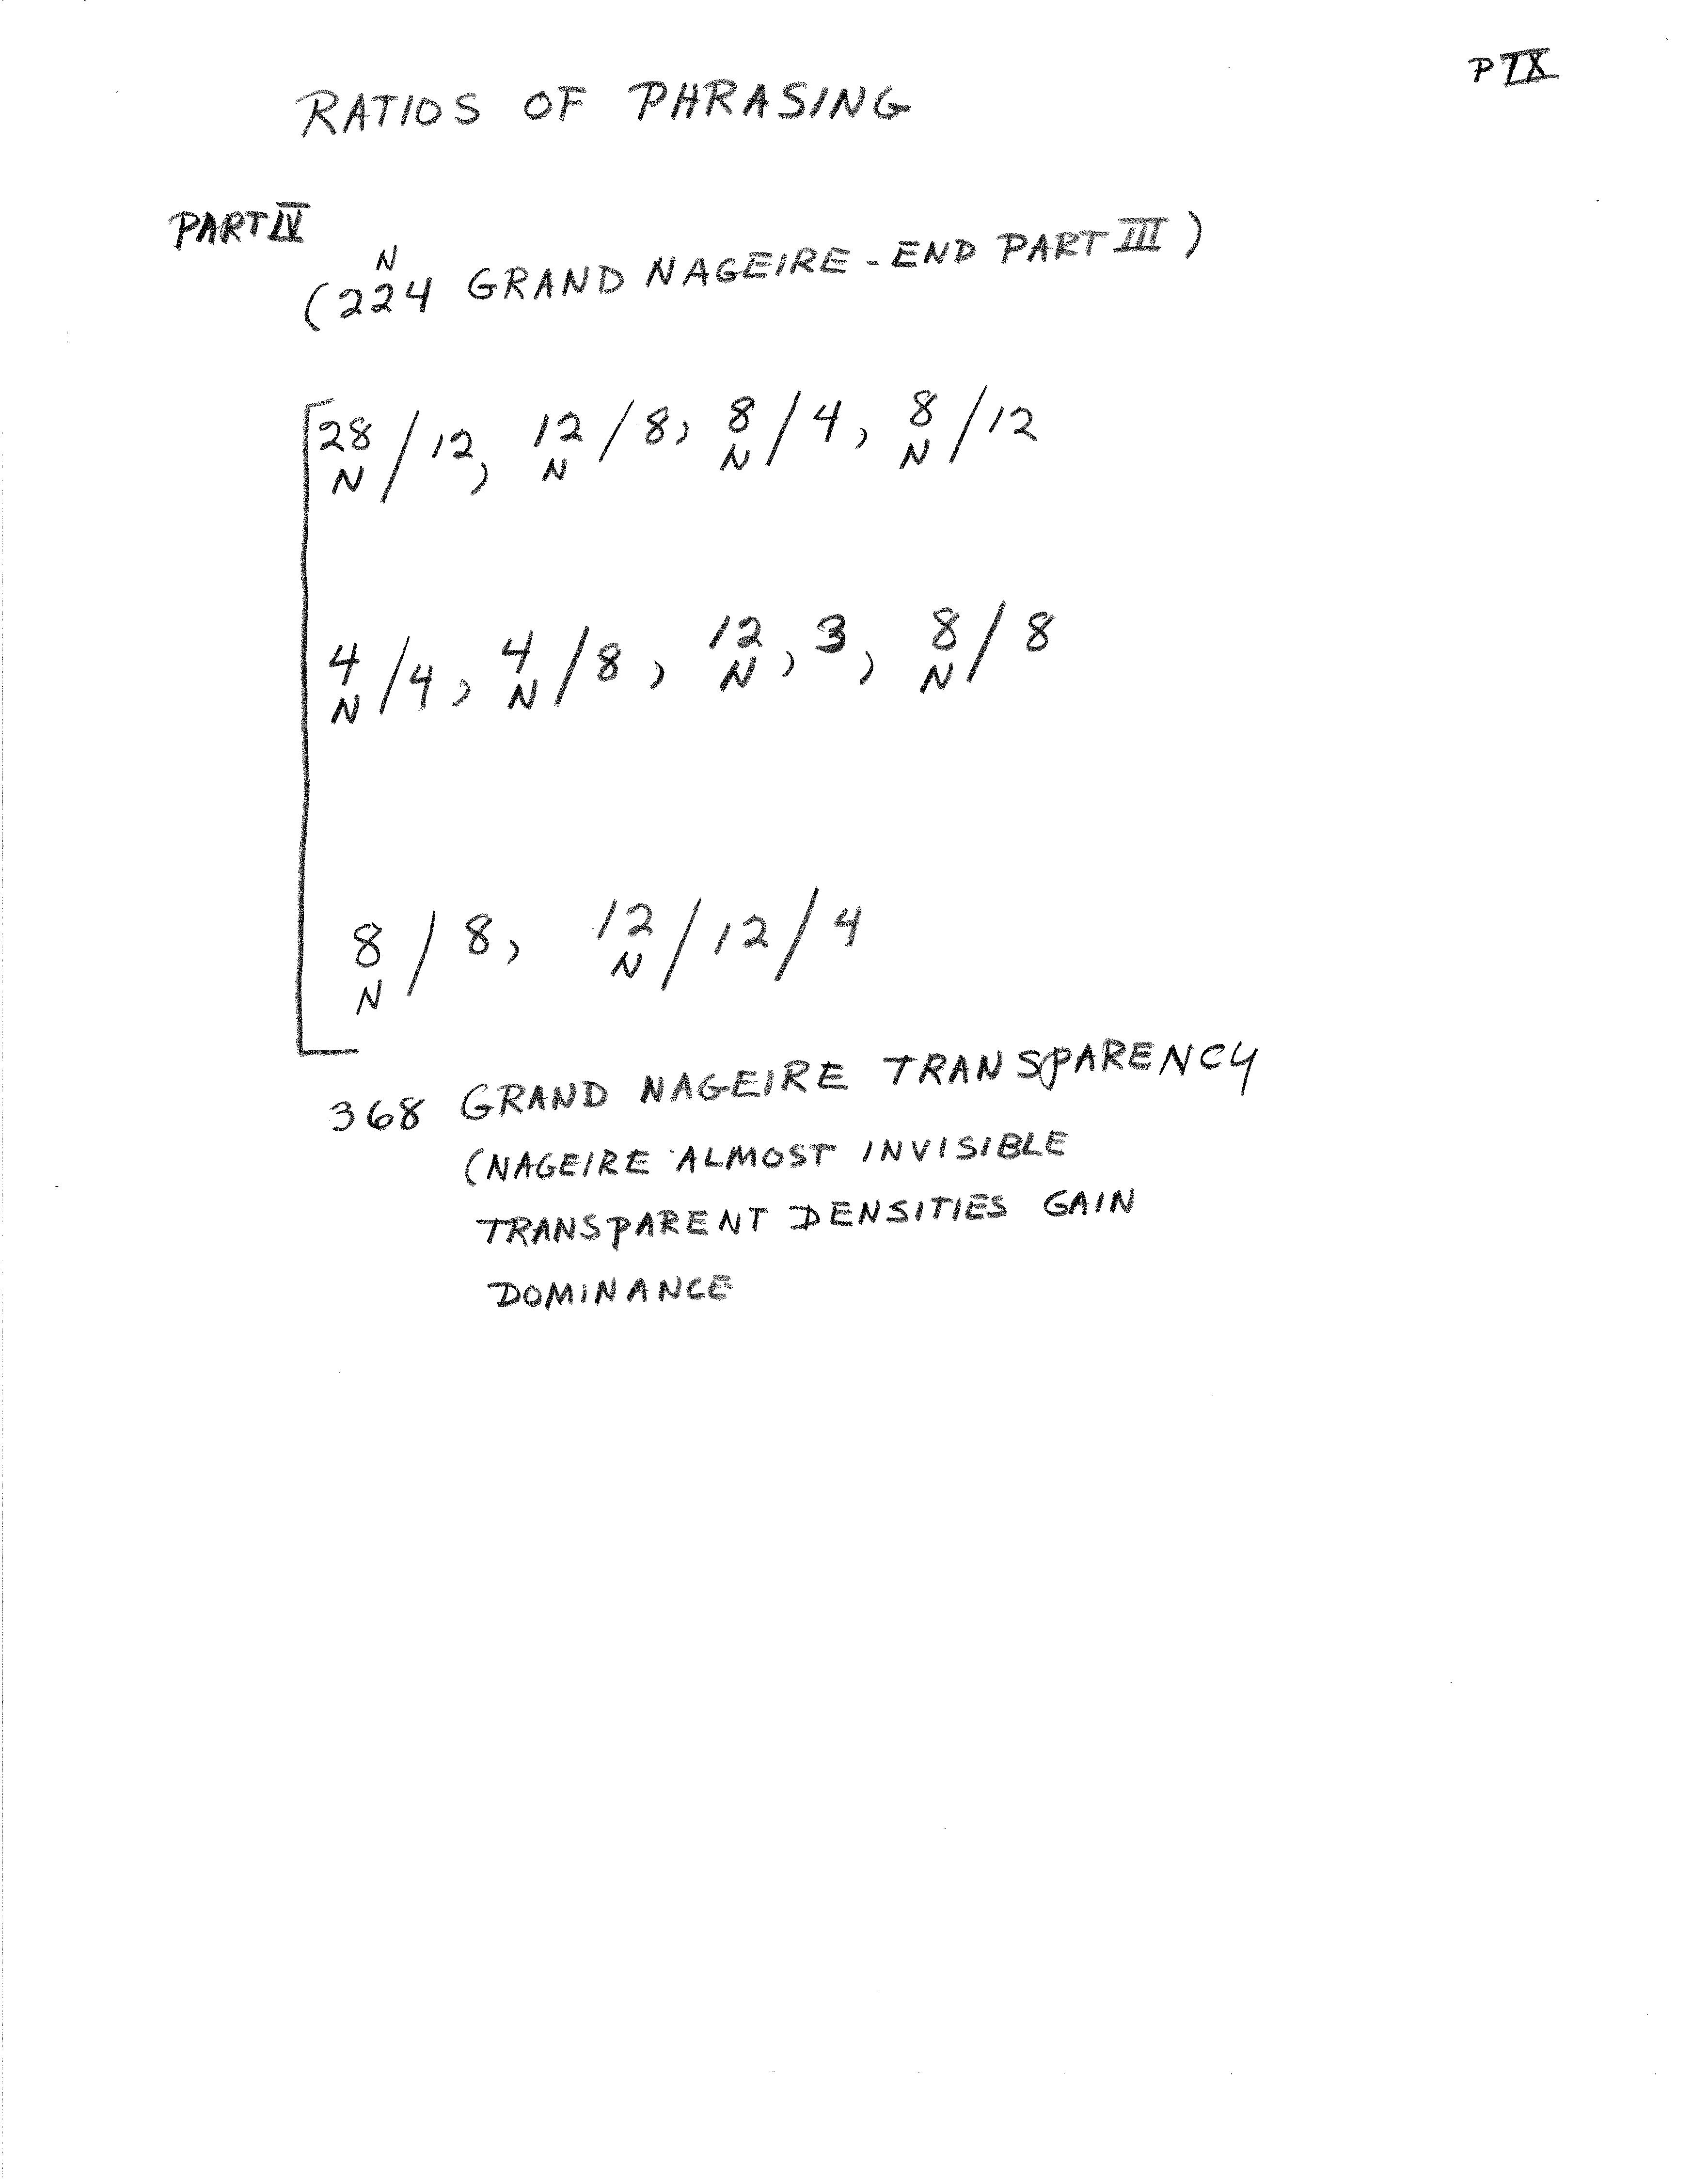 P IX
RATIOS OF PHRASING
PART IV
N
(224 GRAND NAGEIRE - END PART III)
28/12, 12/8, 8/4, 8/12
N N N N
4/4, 4/8, 12, 3, 8/8
N N N N
8/8, 12/12/4
N N
368 GRAND NAGEIRE TRANSPARENCY
(NAGEIRE ALMOST INVISIBLE
TRANSPARENT DENSITIES GAIN
DOMINANCE